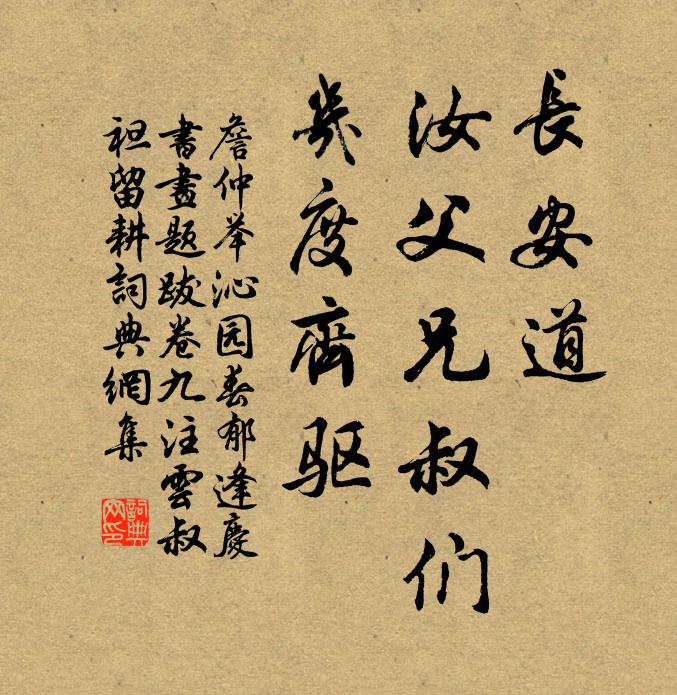 長安道
汝父兄叔们
幾度齊驱
詹仲举沁园春郁逢慶
書畫題跋卷九注雲叔
祖留耕詞典網集
詞典网印